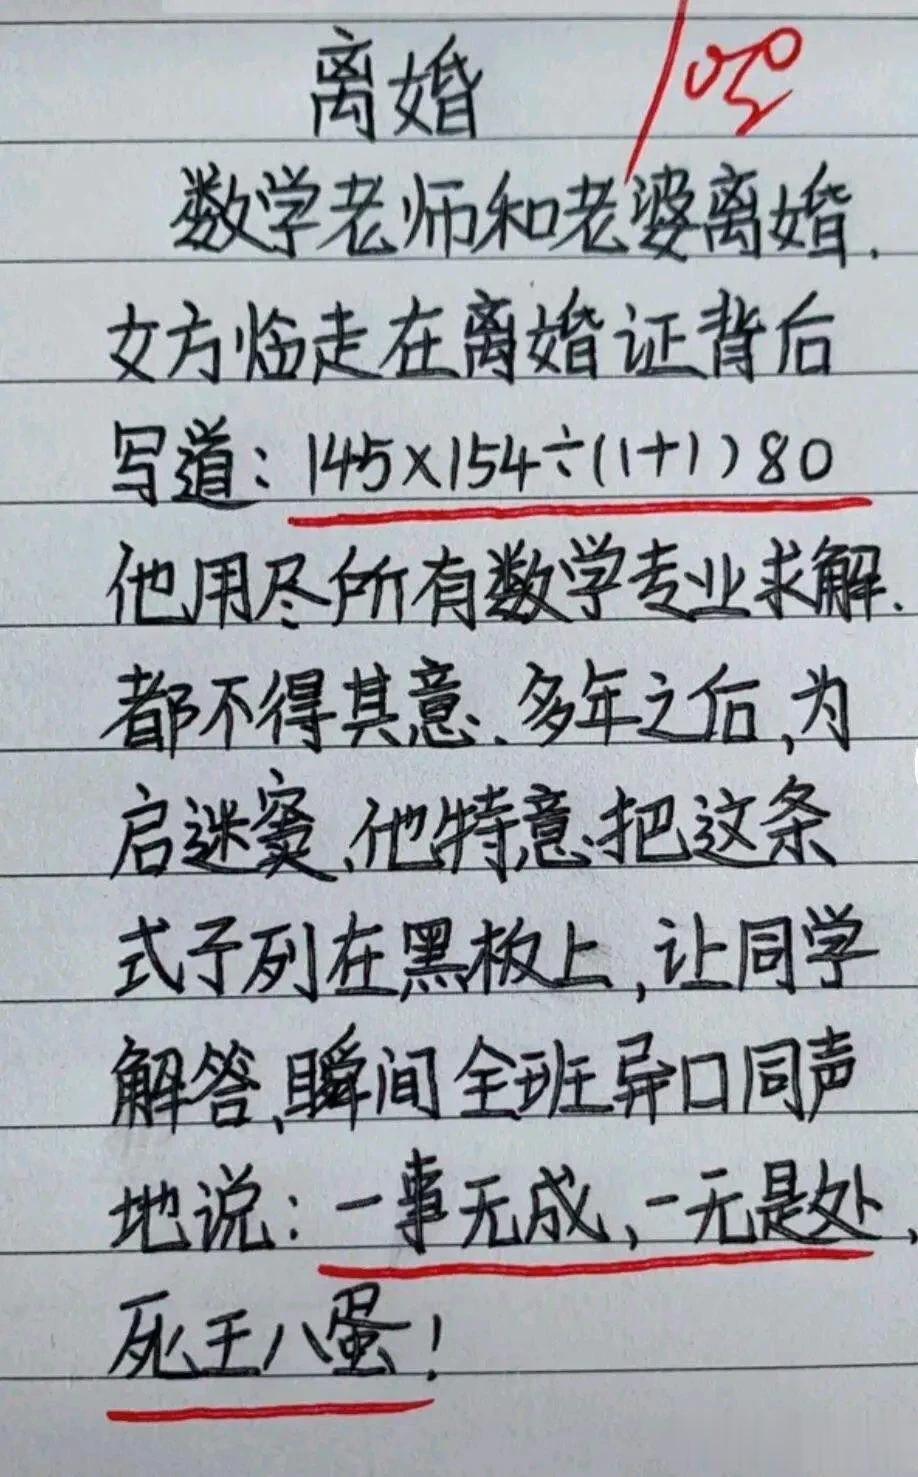 离婚 100
数学老师和老婆离婚.
女方临走在离婚证背后
写道:145×154÷(1+1)80
他用尽所有数学专业求解.
都不得其意、多年之后,为
启迷窦、他特意把这条
式子列在黑板上,让同学
解答,瞬间全班异口同声
地说:一事无成、一无是处,
死王八蛋!